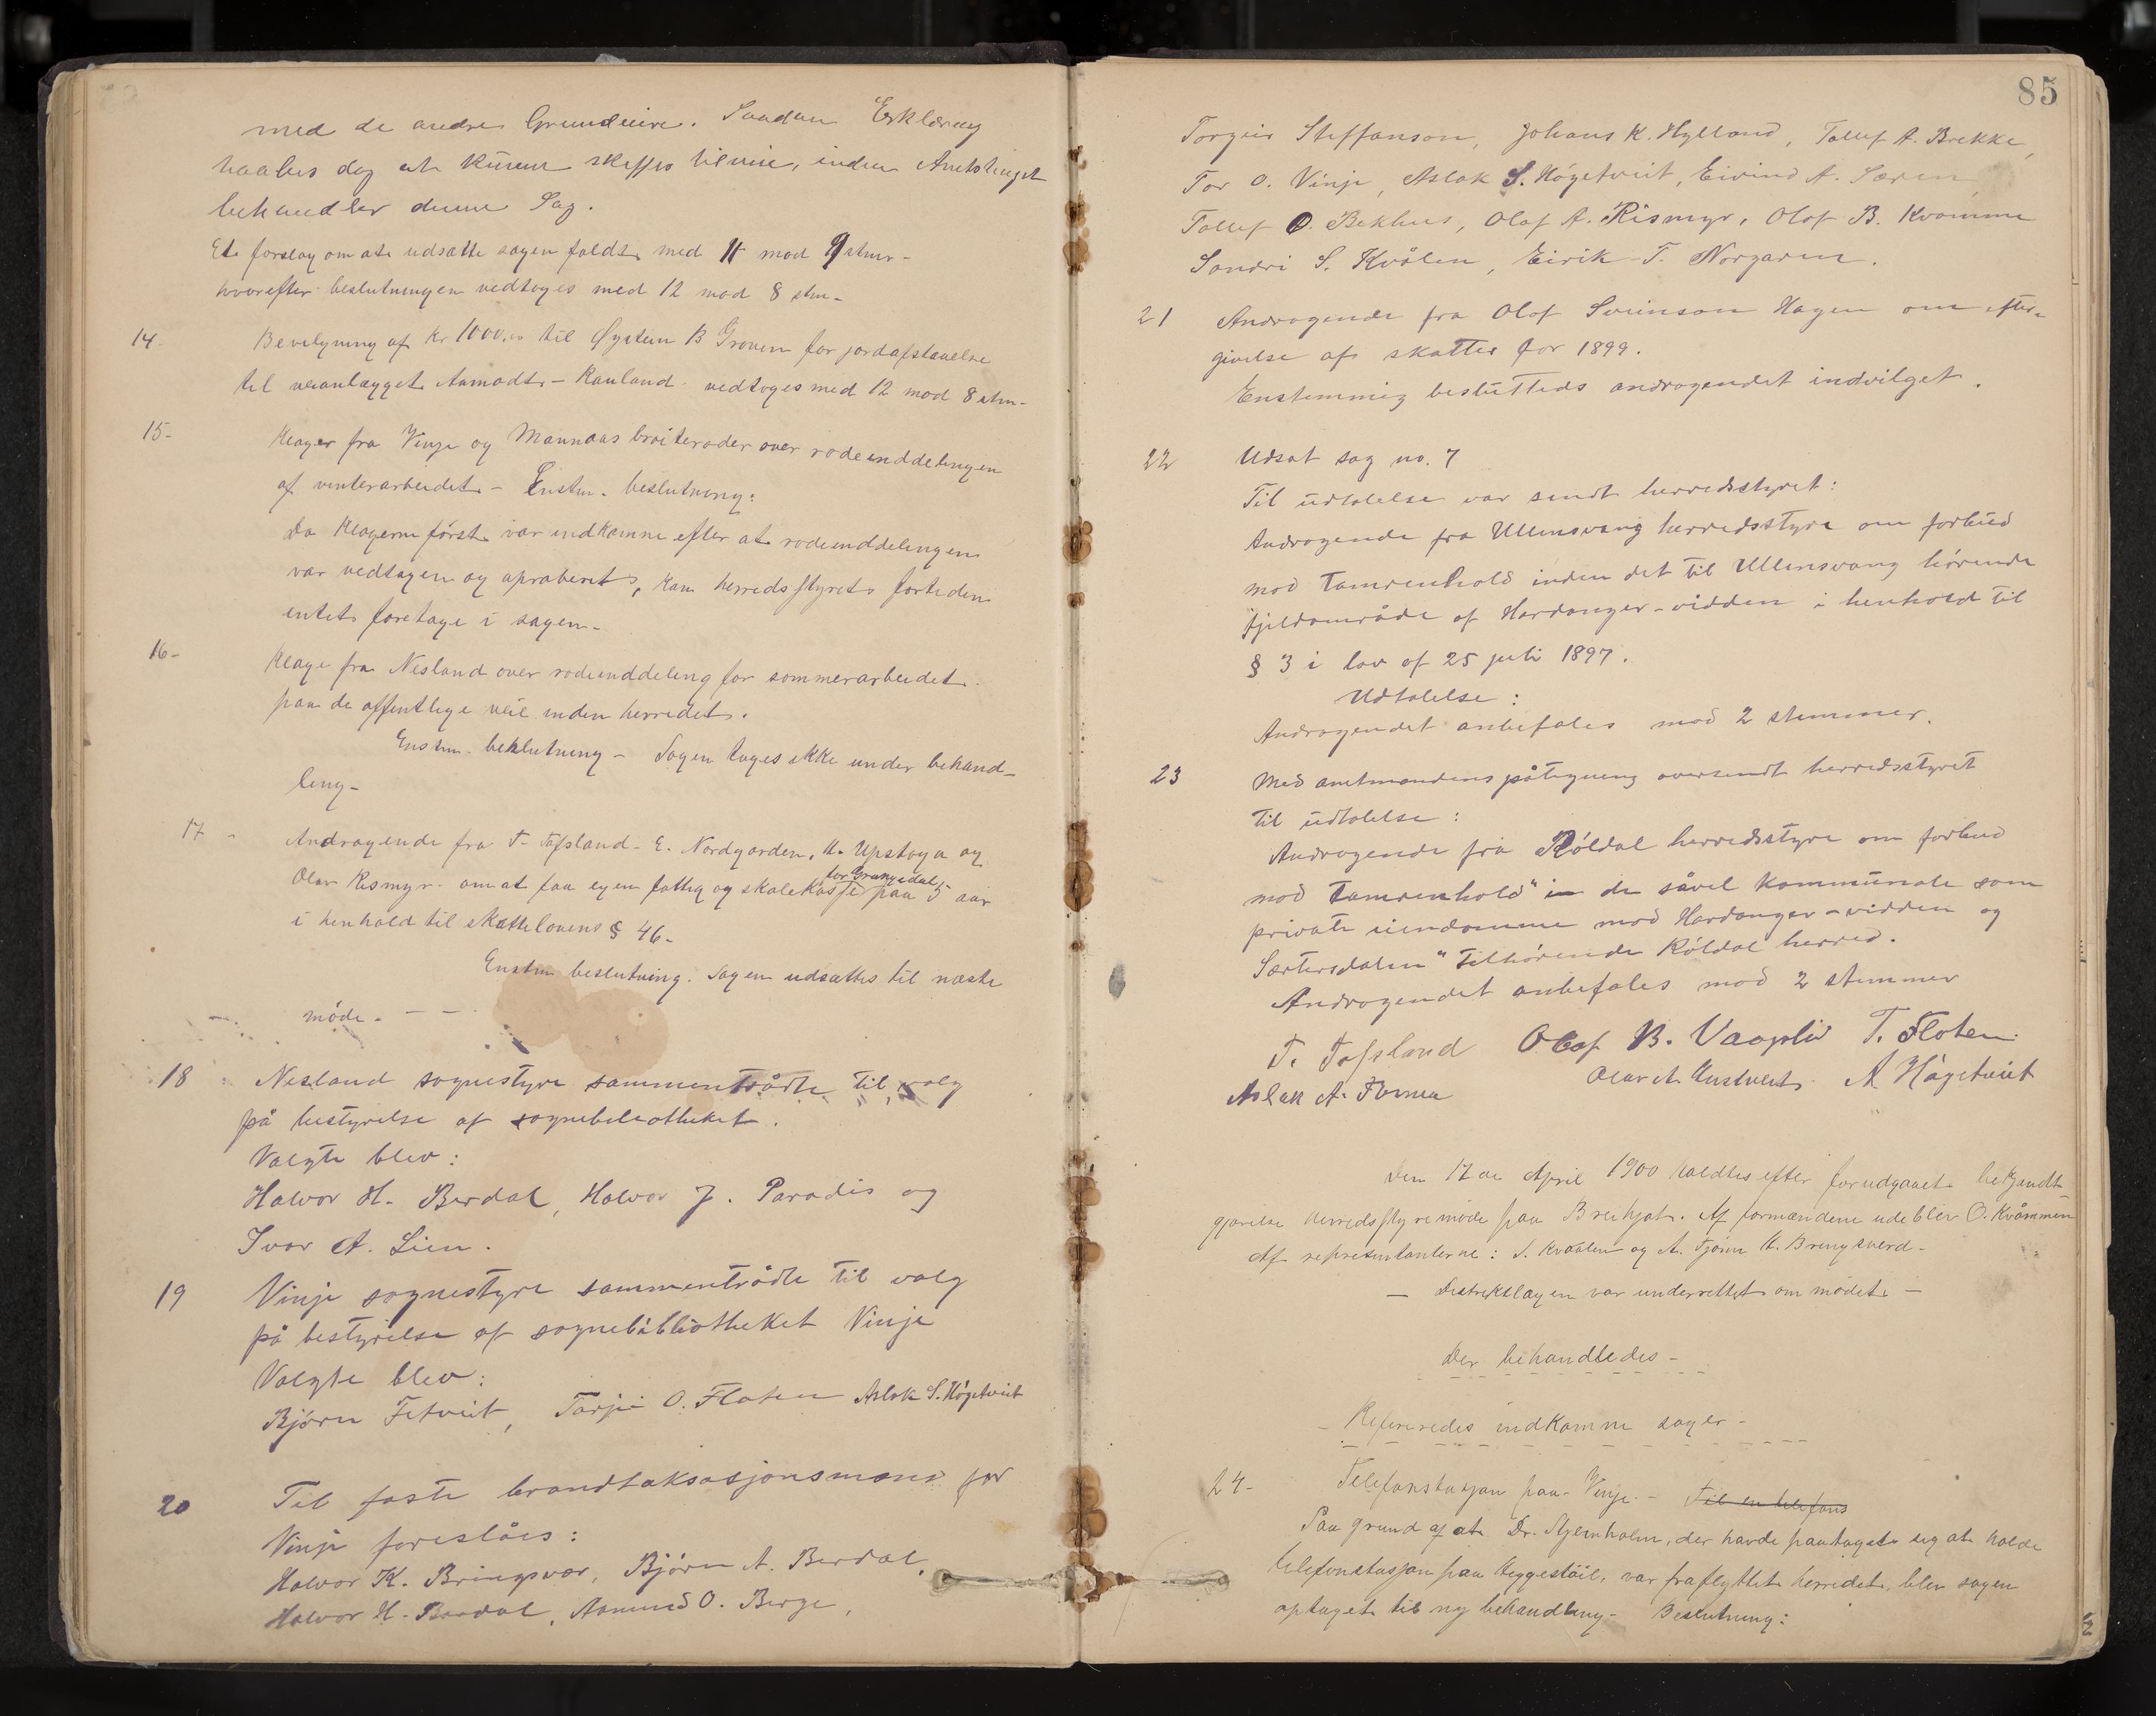 med de andre Grundeiere. Saadan Erklæring
haabes dog at kunne skaffes tilveie, inden Amtstinget
behandler denne Sag.
Et forslag om at udsætte sagen faldt med 11 mod 9 stmr-
hvorefter beslutningen vedtoges med 12 mod 8 stm-
14- Bevilgning af kr 1000,00 til Øystein B Groven for jordafstaaelse
til veianlægget Aamodt - Rauland vedtoges med 12 mod 8 stm-
15- Klager fra Vinje og Mannaas broiteroder over rodeinddelingen
af vinterarbeidet - Enstm. beslutning:
Da klagerne først var indkomne efter at rodeinddelingen
var vedtagen og aproberet, kan herredsstyret fortiden
intet foretage i sagen-
16- Klage fra Nesland over rodeinddeling for sommerarbeidet
paa de offentlige veie inden herredet.
Enstm. beslutning - Sagen tages ikke under behand-
ling-
17- Andragende fra T. Tofsland - E. Nordgarden, H. Upstoga og
for Grungedal
Olav Rismyr. om at faa egen fattig og skolekasse paa 5 aar
i henhold til skattelovens § 46-
Enstm beslutning. Sagen udsættes til næste
møde. - -
18 Nesland sognestyre sammentrådte til valg
på bestyrelse af sognebibliotheket.
Valgte blev:
Halvor H. Berdal, Halvor J. Paradis og
Ivar A. Lien.
19 Vinje sognestyre sammentrådte til valg
på bestyrelse af sognebibliotheket Vinje
Valgte blev:
Bjørn Fetveit, Tarjei O. Flaten Aslak S. Høgetveit
20 Til faste brandtaksasjonsmænd for
Vinje foreslåes:
Halvor K. Bringsvor, Bjørn A. Berdal,
Halvor H. Berdal, Aamund O. Berge,
85
Torgeir Steffanson, Johans K. Hylland, Tallef A. Brekke,
Tor O. Vinje, Aslak S. Høgetveit, Eivind A. Særen,
Tallef O. Bekhus, Olaf A. Rismyr, Olaf B. Kvamme
Sondri S. Kvålen, Eirik T. Norgaren.
21 Andragende fra Olaf Sveinson Hagen om efter-
givelse af skatter for 1899.
Enstemmig besluttedes andragendet indvilget.
22 Udsat sag no. 7
Til udtalelse var sendt herredsstyret:
Andragende fra Ullensvang herredsstyre om forbud
mod Tamrenhold inden det til Ullensvang hørende
fjeldområde af Hardanger-vidden i henhold til
§ 3 i lov af 25 juli 1897.
Udtalelse:
Andragendet anbefales mod 2 stemmer.
23 Med amtmandens påtegning oversendt herredsstyret
til udtalelse:
Andragende fra Røldal herredsstyre om forbud
mod Tamrenhold "i de såvel kommunale som
private eiendomme mod Hardanger-vidden og
Sætersdalen" tilhørende Røldal herred.
Andragendet anbefales mod 2 stemmer
T. Tofsland Olaf B. Vaagslid T. Floten
Aslak A. Olav A. A Høgetveit
Den 17de April 1900 holdtes efter forudgaaet bekjendt-
gjørelse herredsstyremøde paa Breihjat. Af formændene udeblev O. Kvammen
Af repræsentanterne: S. Kvaalen og A. Tjønn H. Bringsverd-
- Distrikslægen var underrettet om mødet -
Der behandledes-
- Refereredes indkomne sager -
24- Telefonstasjon paa Vinje. - Til en telefons
Paa grund af at Dr. Stjernholm, der havde paataget sig at holde
telefonstasjon paa Heggestøil, var fraflyttet herredet, blev sagen
optaget til ny behandling- Beslutning: